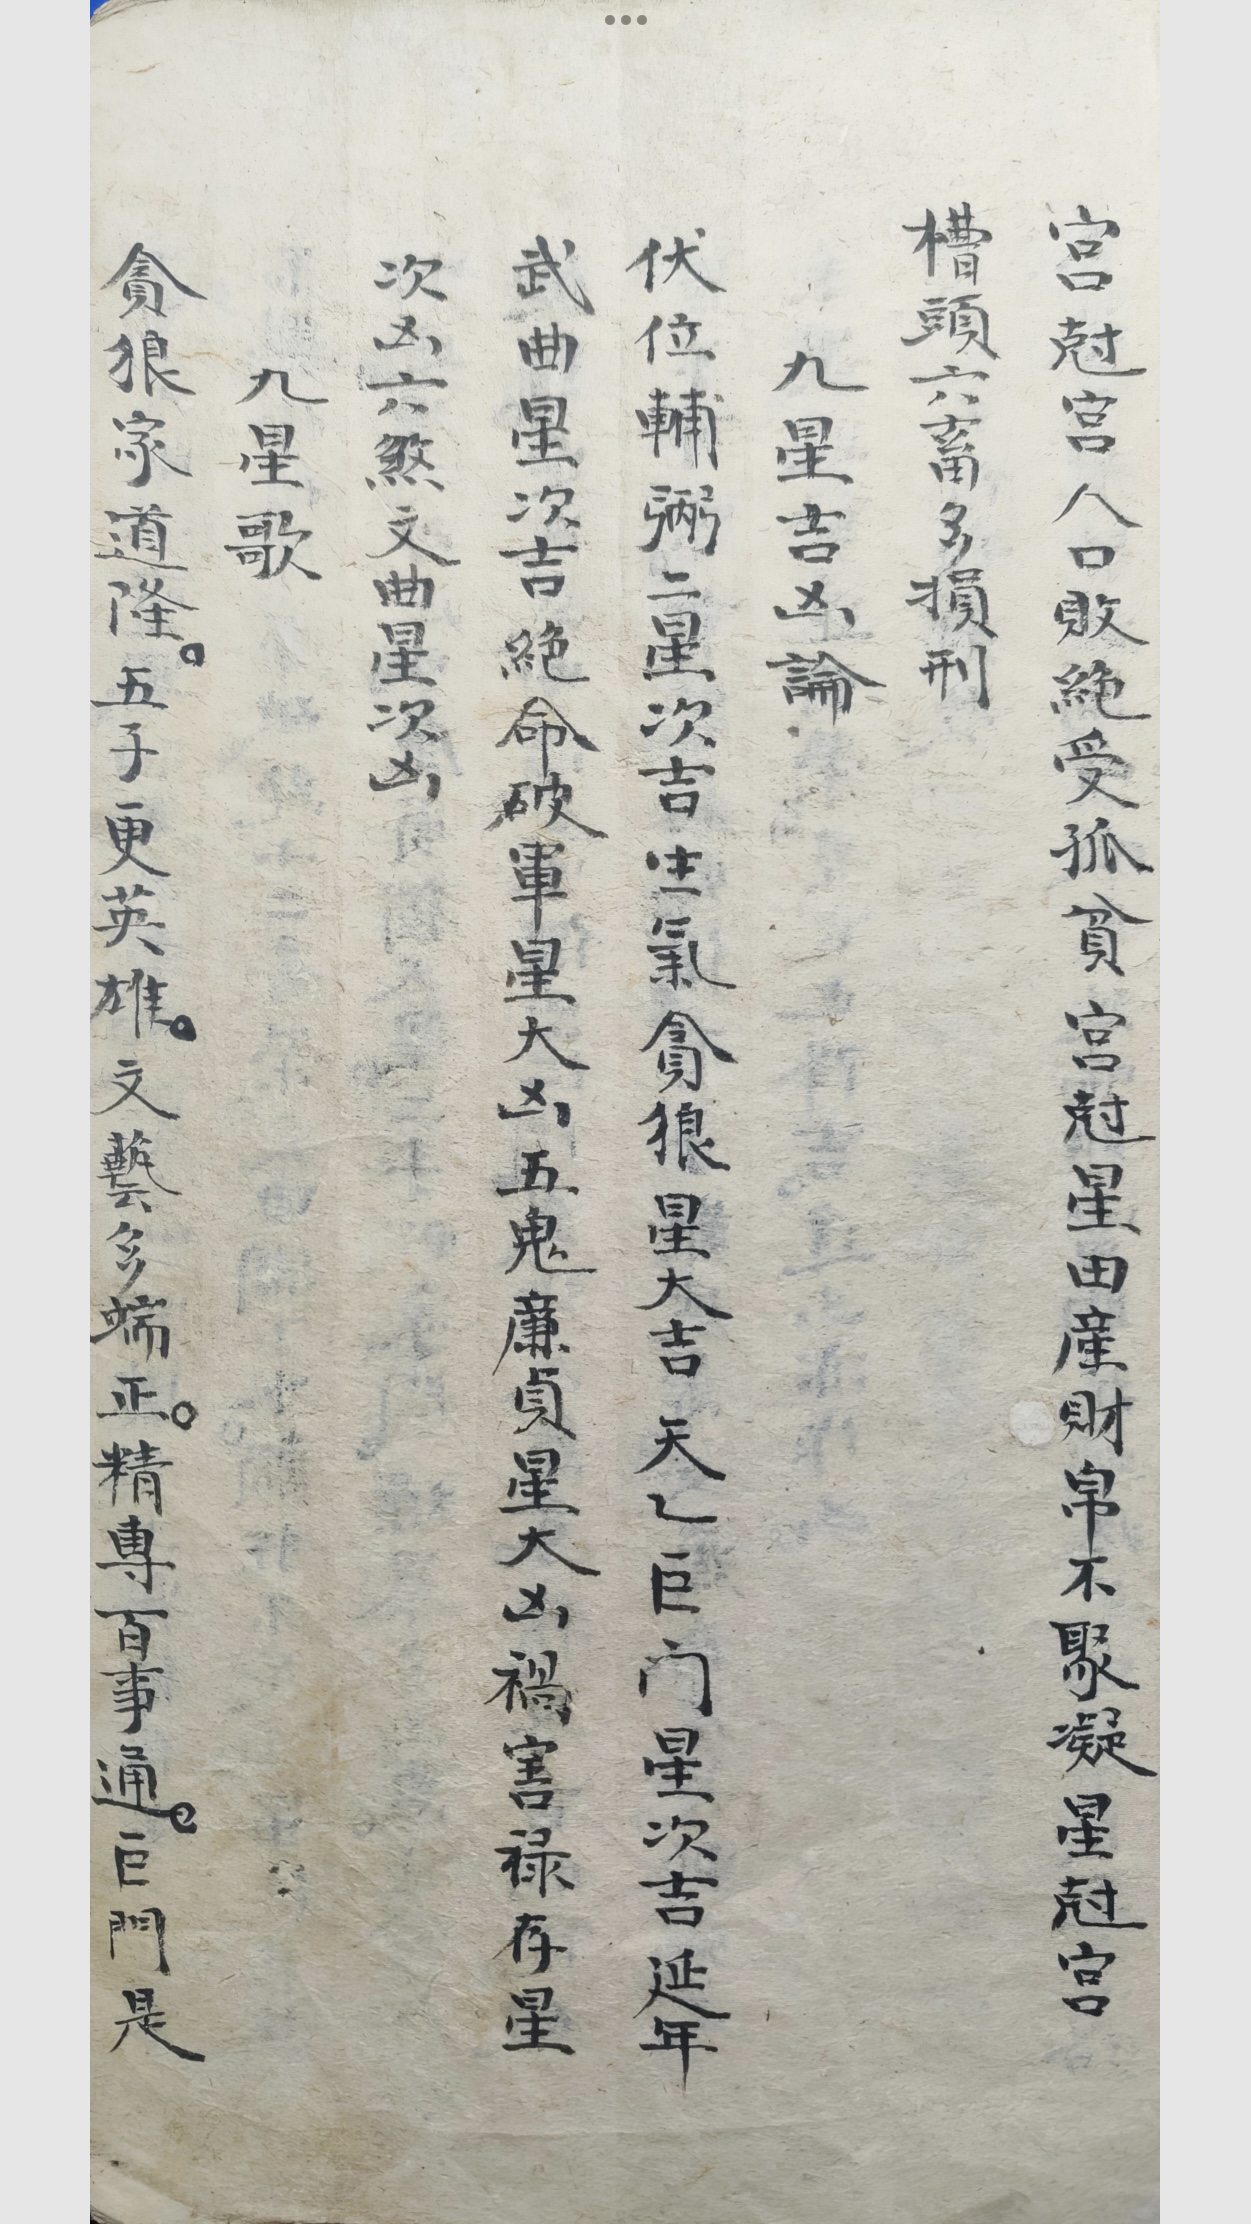 宫尅宫人口敗絶受孤貧宫尅星田產財帛不聚凝星尅宫
槽頭六畜多損刑
九星吉凶論
伏位輔弼二星次吉生氣貪狼星大吉天乙巨门星次吉延年
武曲星次吉絶命破軍星大凶五鬼廉貞星大凶禍害禄存星
次凶六煞文曲星次凶
九星歌
貪狼家道隆。五子更英雄。文藝多端正。精專百事通。巨門是